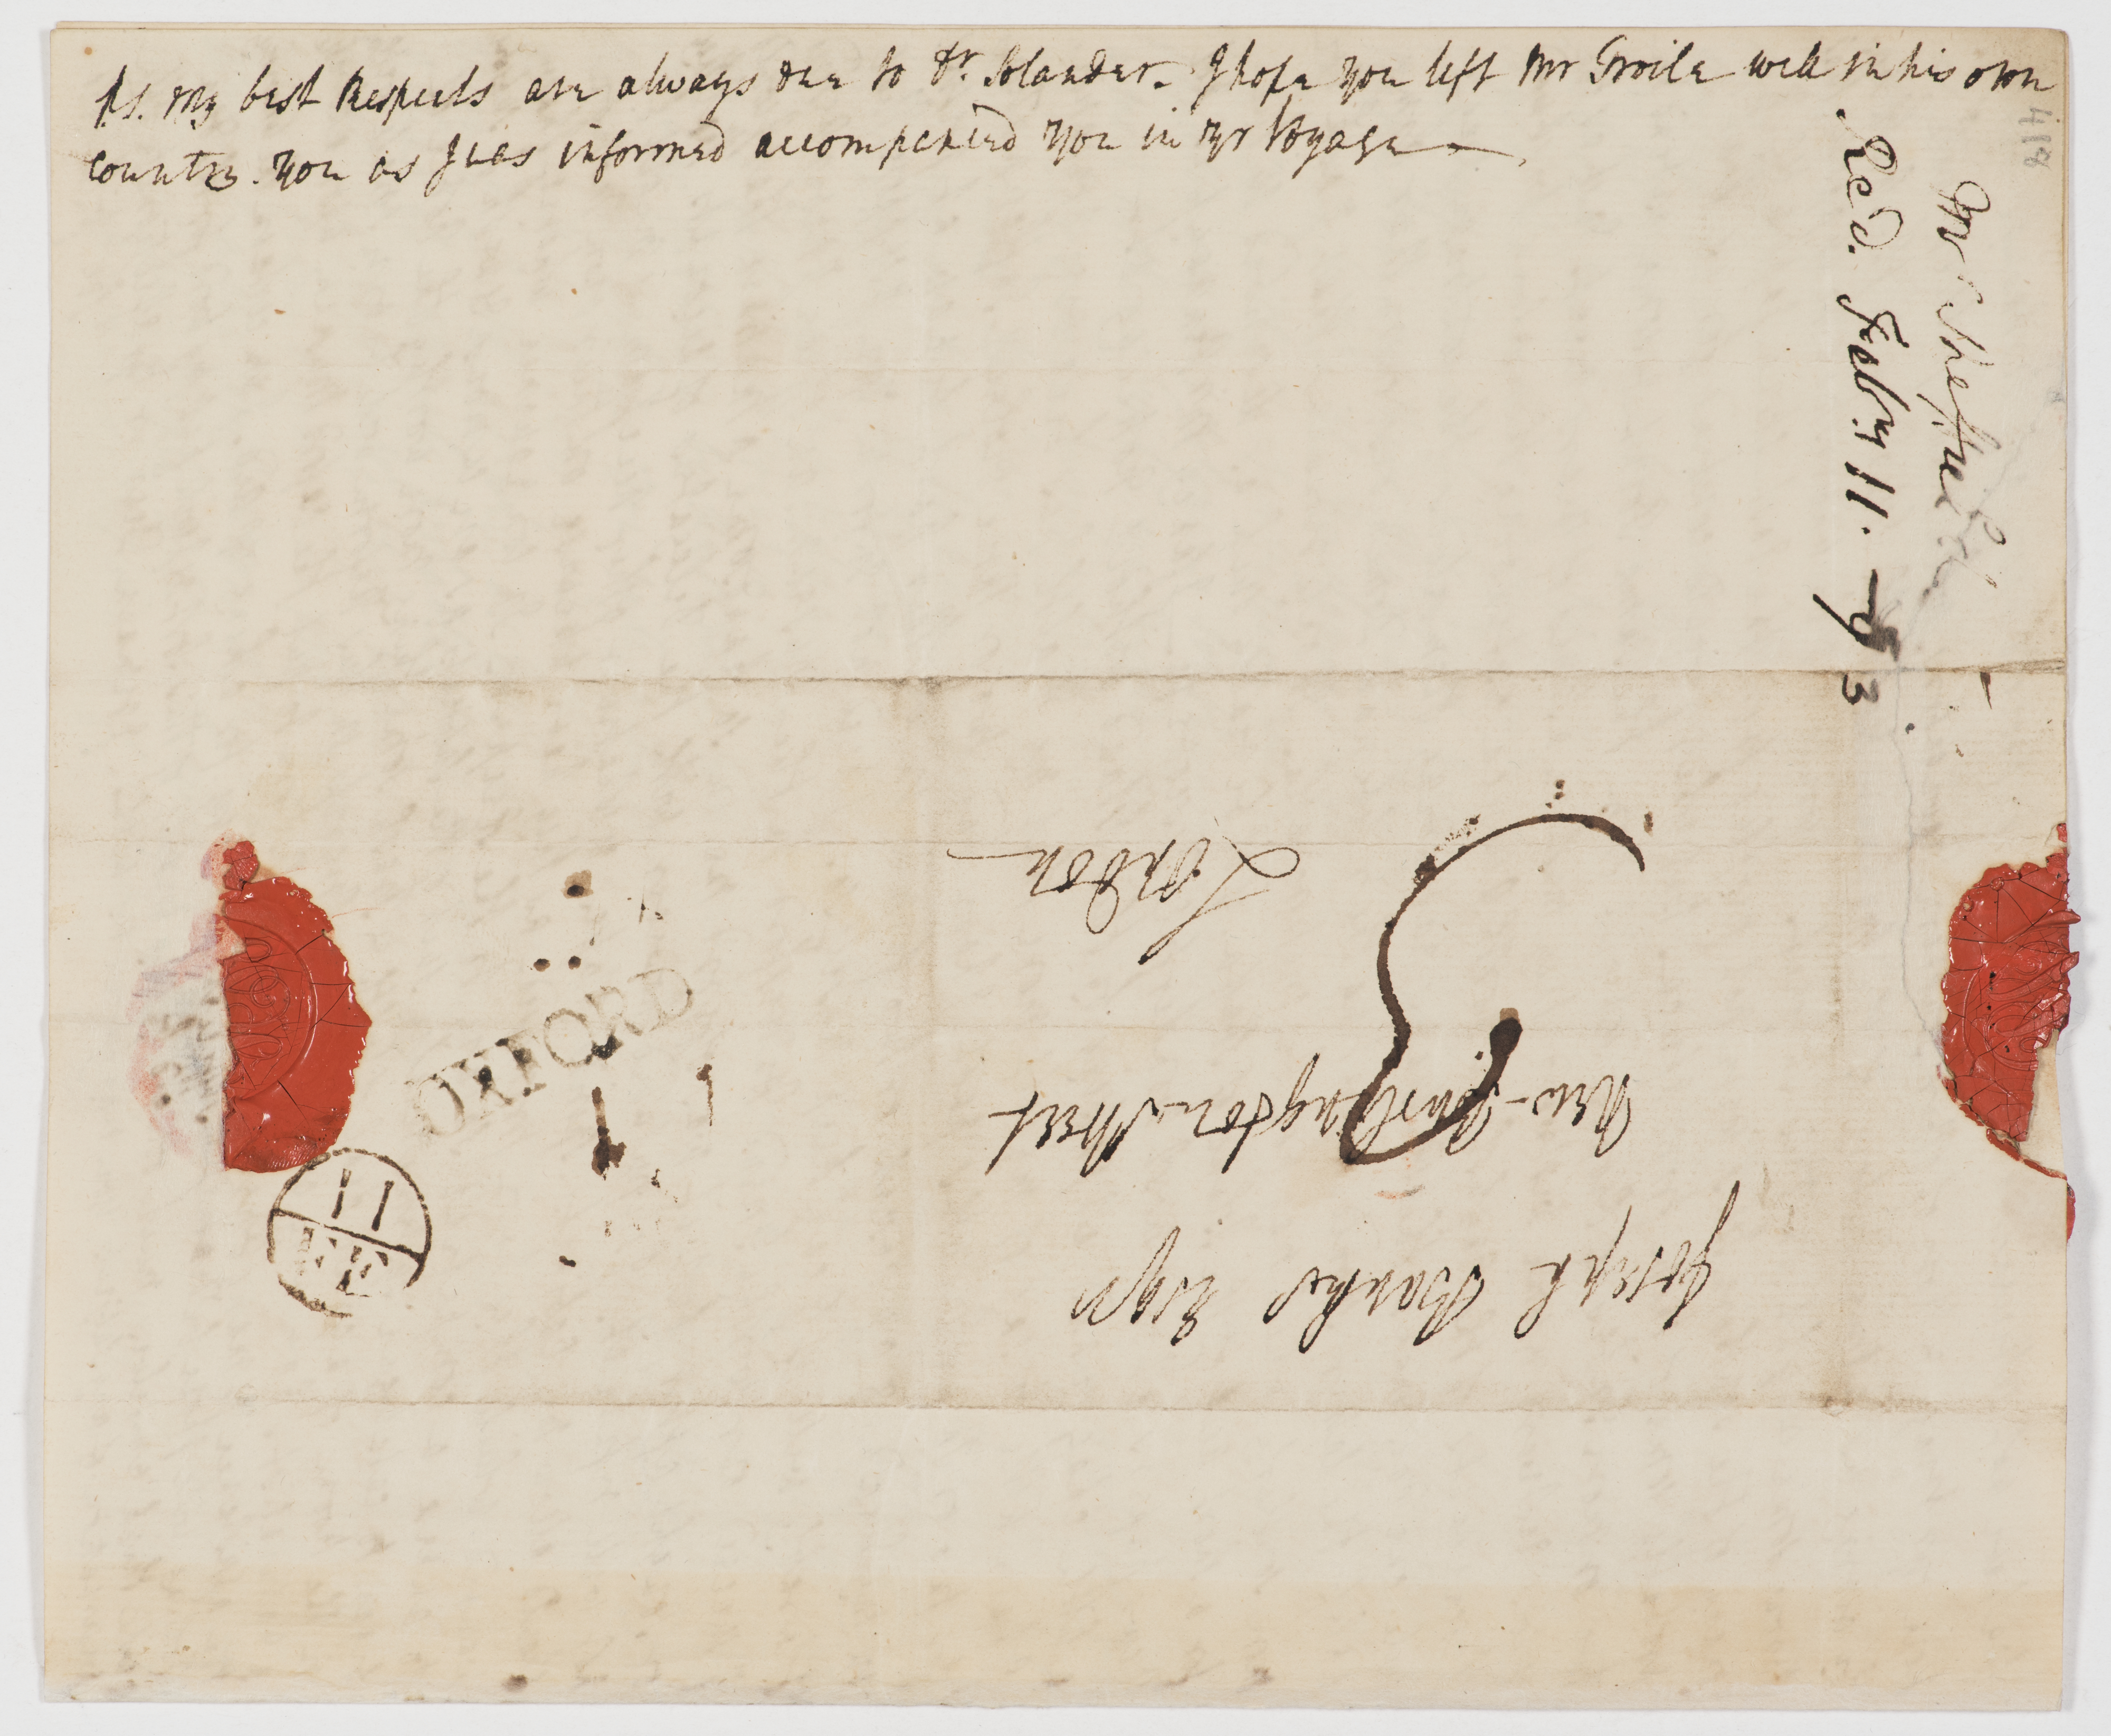 P.S. My best Respects are always due to Dr. Solander. I hope you left Mr Troile well in his own
country. you as I was informed accompanied you in yr Voyage
Mr Sheffield
Recd. Feby 11. -73
418
Joseph Banks Esqr
New-Burlington Street
London
OXFORD
11